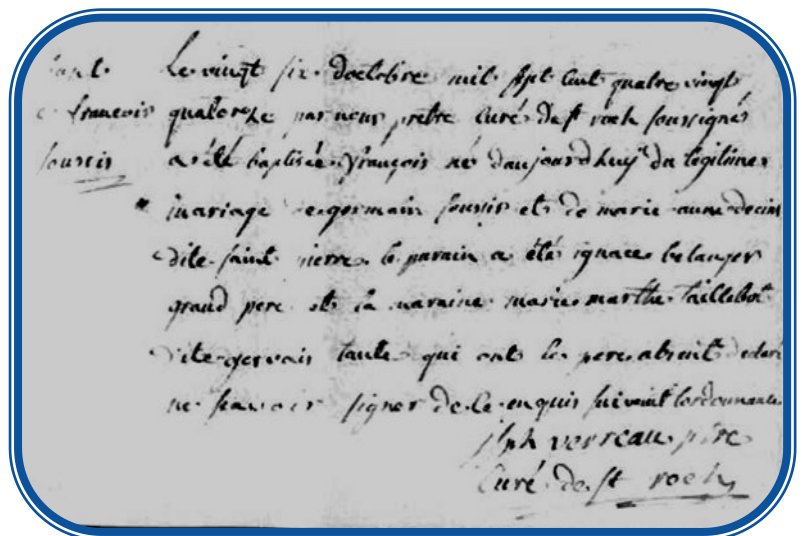 bapt.
françois
soucis
Le vingt six doctobre mil sept cent quatre vingt
quatorze par nous prêtre Curé de st roch soussigné
a été baptisée françois né daujourdhuy du légitime
mariage de germain soucis et de marie anne
dite saint pierre le parain a été ignace belanger
grand pere et la maraine marie marthe taillebot
dite gervais tante qui ont le pere absent déclaré
ne seavoir signer de ce enquis suivant lordonnance
jsph verreau ptre
Curé de st roch